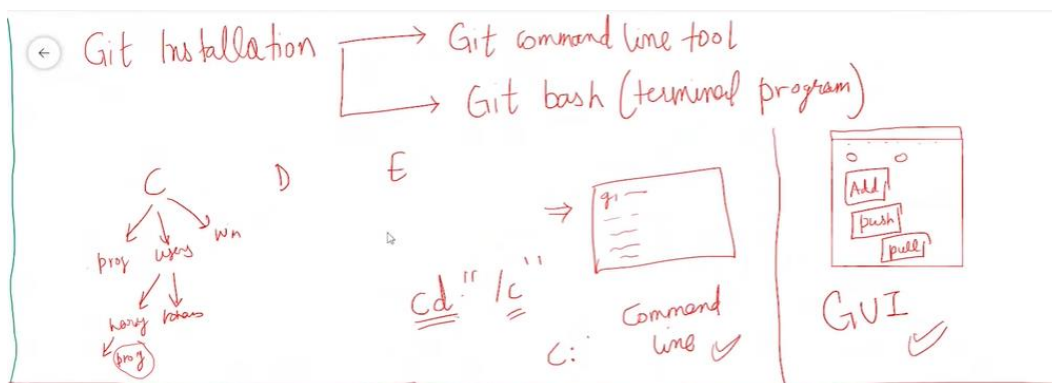 Git Installation
Git command line tool
Git bash (terminal program)
C D E
prog users Win
harry
prog
cd "/c"
C:
gi
Command
line
Add
push
pull
GUI